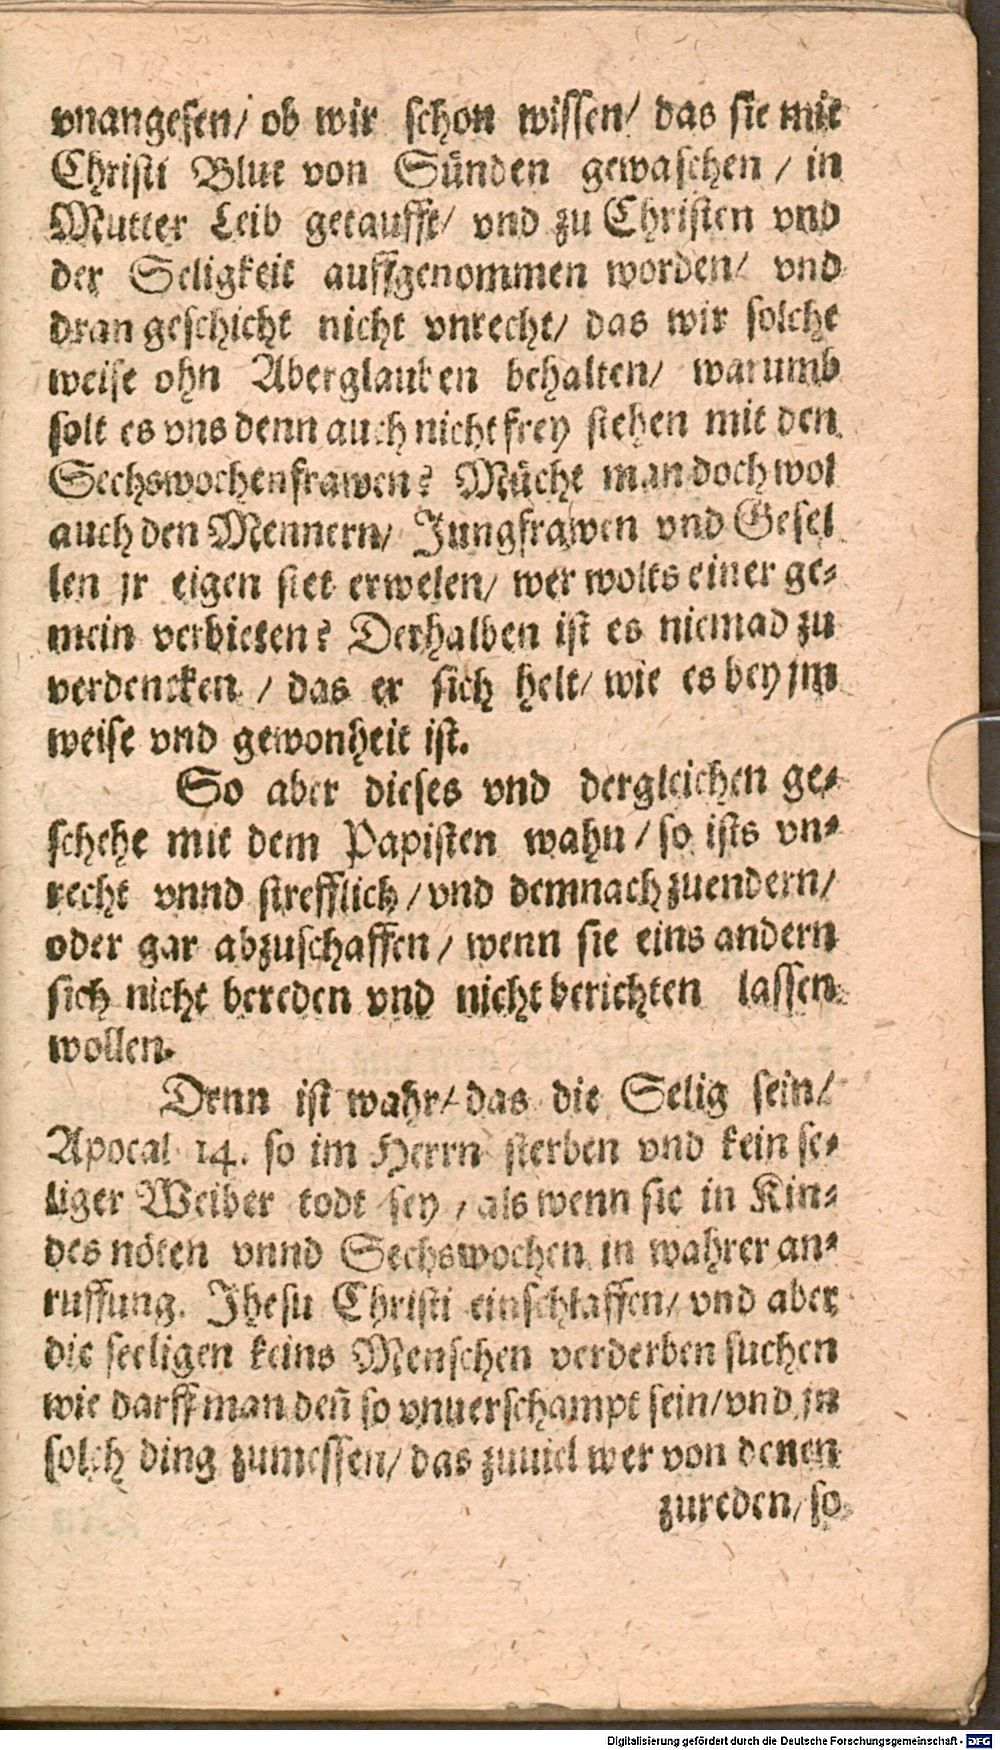 vnangesen/ ob wir schon wissen/ das sie mit
Christi Blut von Sünden gewaschen / in
Mutter Leib getaufft/ vnd zu Christen vnd
der Seligkeit auffgenommen worden/ vnd
dran geschicht nicht vnrecht/ das wir solche
weise ohn Aberglauben behalten/ warumb
solt es vns denn auch nicht frey stehen mit den
Sechswochenfrawen? Möcht man doch wol
auch den Mennern/ Jungfrawen vnd Gesel
len jr eigen stet erwelen/ wer wolts einer ge-
mein verbieten? Derhalben ist es niemad zu
verdencken / das er sich helt/ wie es bey jm
weise vnd gewonheit ist.
So aber dieses vnd dergleichen ge-
schehe mit dem Papisten wahn / so ists vn-
recht vnnd strefflich / vnd demnach zuendern/
oder gar abzuschaffen / wenn sie eins andern
sich nicht bereden vnd nicht berichten lassen
wollen.
Denn ist wahr/ das die Selig sein/
Apocal 14. so im Herrn sterben vnd kein se-
liger Weiber todt sey / als wenn sie in Kin-
des nöten vnnd Sechswochen in wahrer an-
ruffung. Jhesu Christi einschlaffen/ vnd aber
die seeligen keins Menschen verderben suchen
wie darff man deñ so vnuerschampt sein/ vnd jn
solch ding zumessen/ das zuuiel wer von denen
zureden/ so
Digitalisierung gefördert durch die Deutsche Forschungsgemeinschaft - DFG